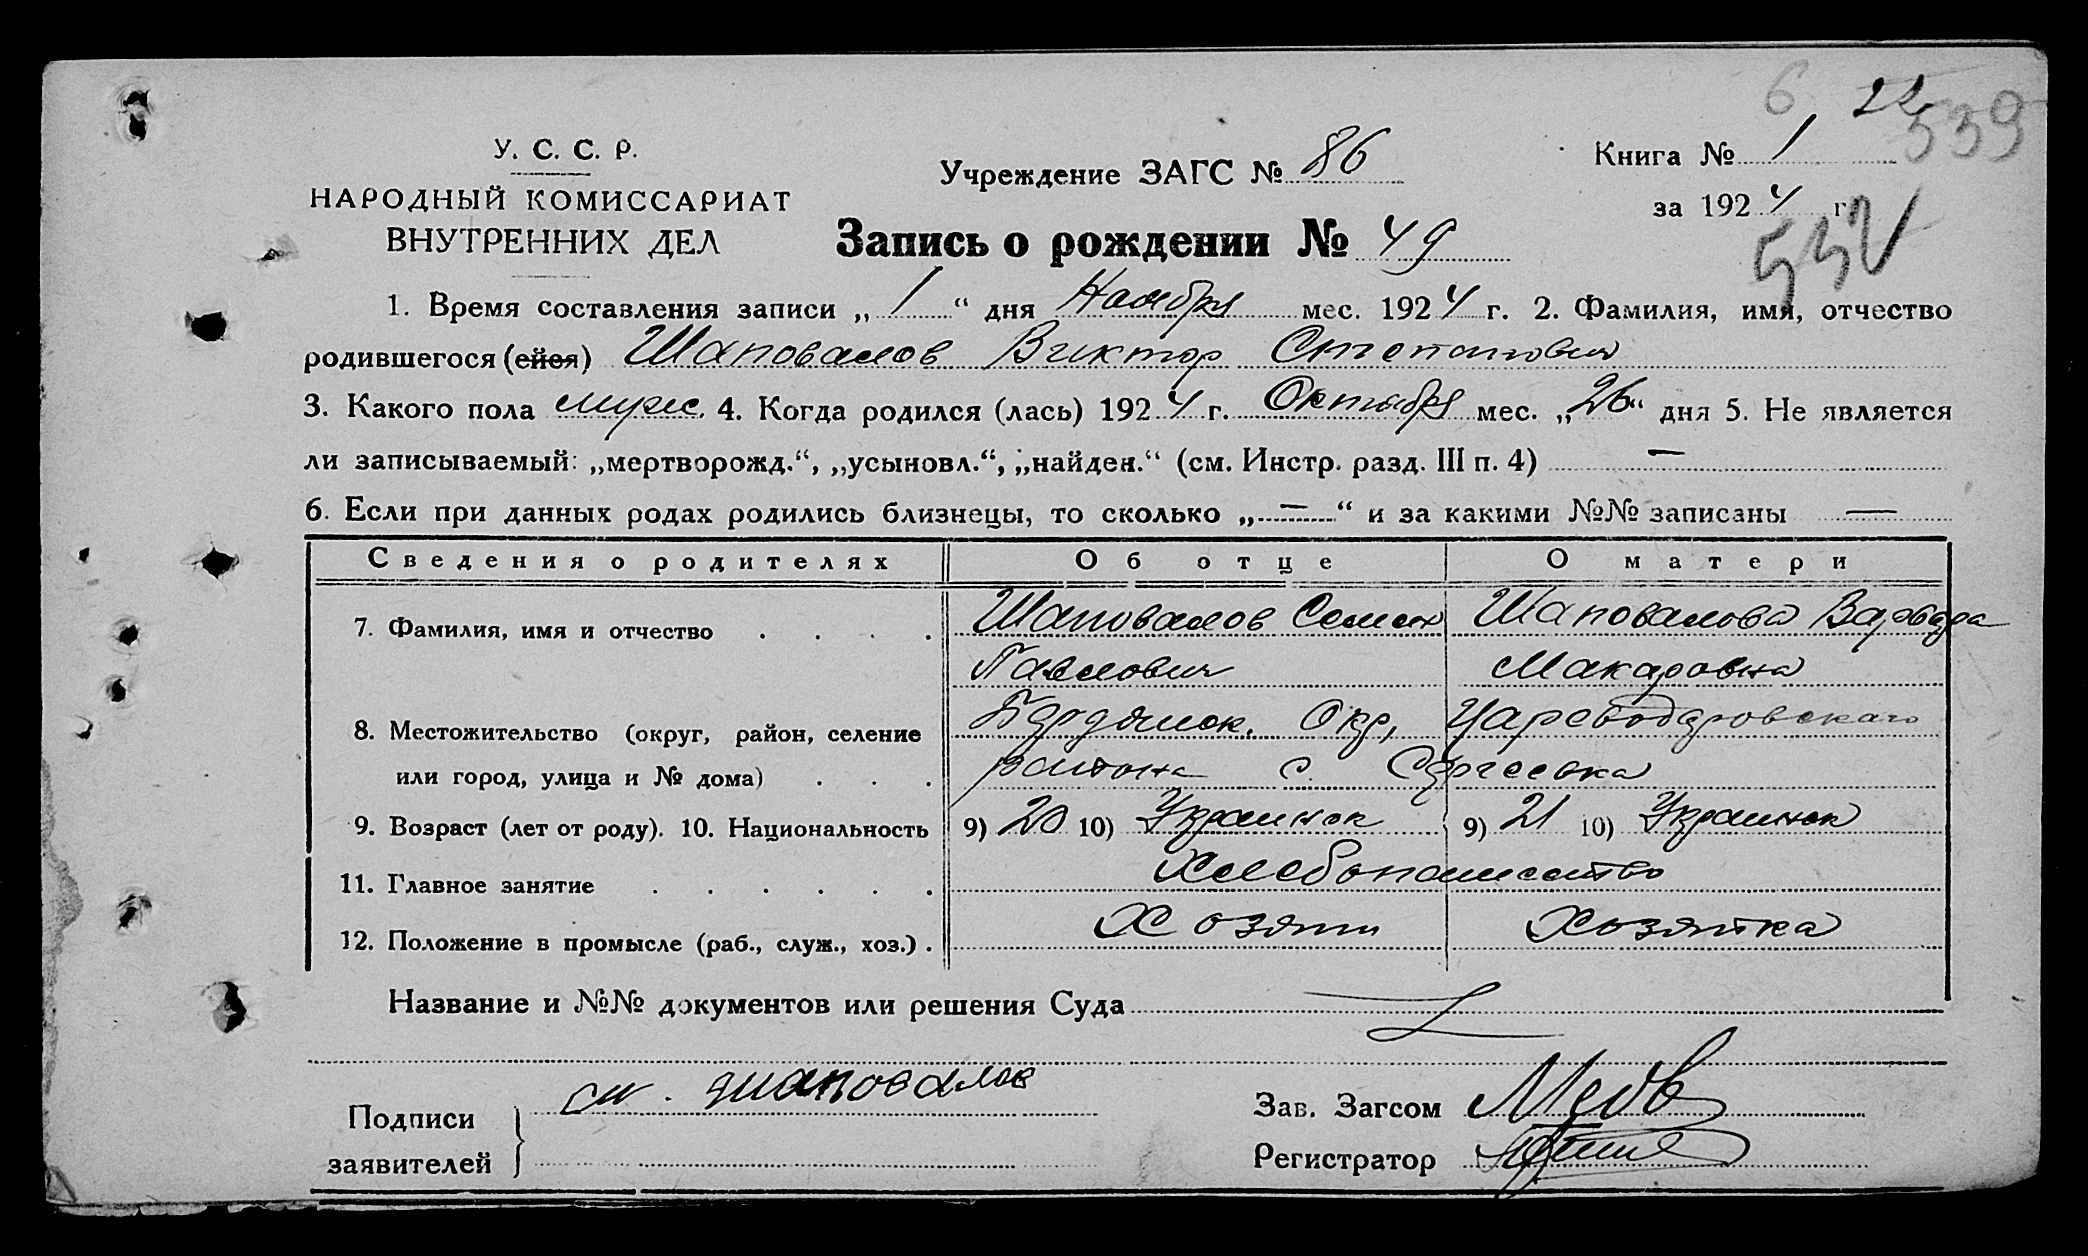 6 22 539
У. С. С. Р.
НАРОДНЫЙ КОМИССАРИАТ
ВНУТРЕННИХ ДЕЛ
Учреждение ЗАГС № 86
Книга № 1
за 1924 г.
Запись о рождении № 49
1. Время составления записи „ 1 “ дня Ноября мес. 1924 г. 2. Фамилия, имя, отчество
родившегося (ейся) Шаповалов Виктор
3. Какого пола мужс. 4. Когда родился (лась) 1924 г. Октября мес. „26“ дня 5. Не является
ли записываемый: „мертворожд.“, „усыновл.“, „найден.“ (см. Инстр. разд. III п. 4) —
6. Если при данных родах родились близнецы, то сколько „—“ и за какими №№ записаны —
Сведения о родителях Об отце О матери
7. Фамилия, имя и отчество Шаповалов Шаповалова Варвара
Павлович Макаровна
8. Местожительство (округ, район, селение Бердянск. Окр, Цареводаровскаго
или город, улица и № дома) района с. Сергеевка
9. Возраст (лет от роду). 10. Национальность 9) 20 10) Украинск 9) 21 10) Украинск
11. Главное занятие Хлебопашество
12. Положение в промысле (раб., служ., хоз.) Хозяин Хозяйка
Название и №№ документов или решения Суда
Подписи
заявителей
Шаповалов
Зав. Загсом
Регистратор